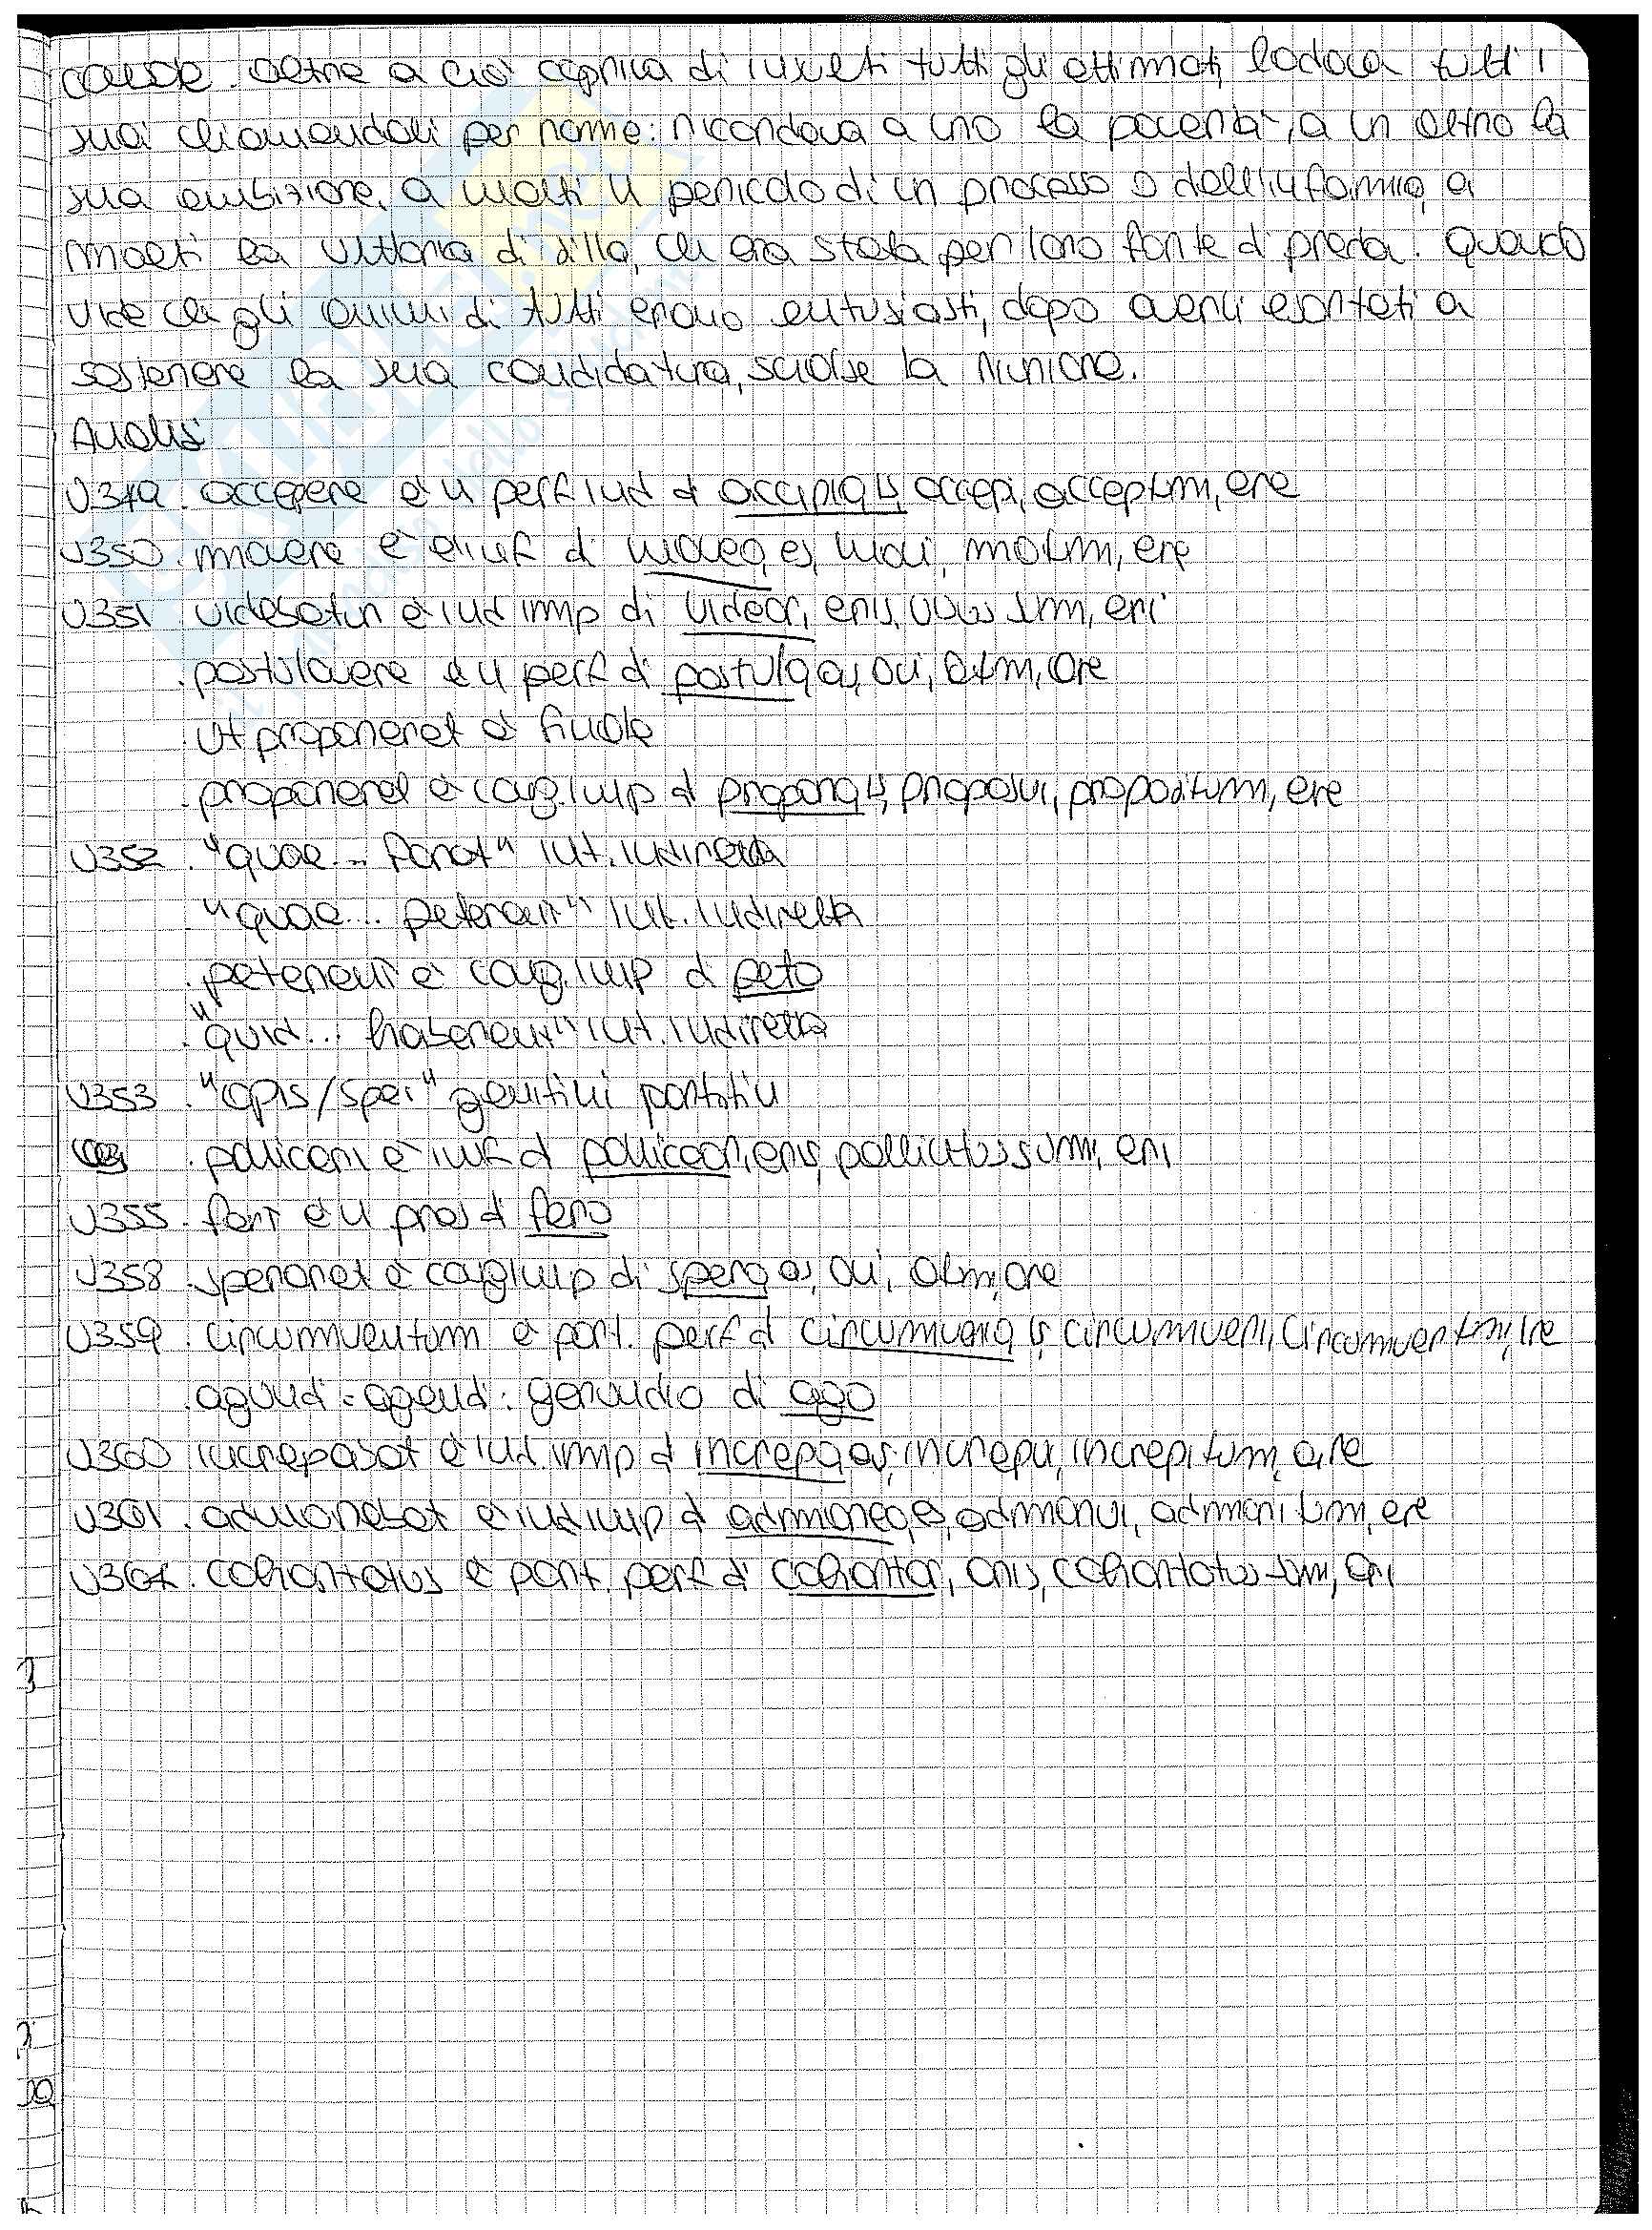 . Oltre a ciò copriva di insulti tutti gli ottimati, lodava tutti i
suoi chiamandoli per nome: ricordava a uno la povertà, a un altro la
sua ambizione, a molti il pericolo di un processo o dell'infamia, a
molti la vittoria di Silla, che era stata per loro fonte di preda. Quando
vide che gli animi di tutti erano entusiasti, dopo averli esortati a
sostenere la sua candidatura, sciolse la riunione.
Analisi
V349. accepere è il perf ind di accipio, is, accepi, acceptum, ere
V350. movere è l'inf di moveo, es, movi, motum, ere
V351 videbatur è ind imp di videor, eris, visus sum, eri
. postulavere è il perf di postulo, as, avi, atum, are
. ut proponeret è finale
. proponeret è cong. imp di propono, is, proposui, propositum, ere
V352 . "quae... foret" int. indiretta
. "quae... peterent" int. indiretta
. peterent è cong. imp di peto
. "quid... haberent" int. indiretta
V353 . "opis/spei" genitivi partitivi
. polliceri è inf di polliceor, eris, pollicitus sum, eri
V355. fert è il pres di fero
V358 . speraret è cong imp di spero, as, avi, atum, are
V359 . circumventum è part. perf di circumvenio, is, circumveni, circumventum, ire
. agundi = agendi : gerundio di ago
V360 increpabat è ind. imp di increpo, as, increpui, increpitum, are
V361 . admonebat è ind imp di admoneo, es, admonui, admonitum, ere
V364 . cohortatus è part. perf di cohortor, aris, cohortatus sum, ari